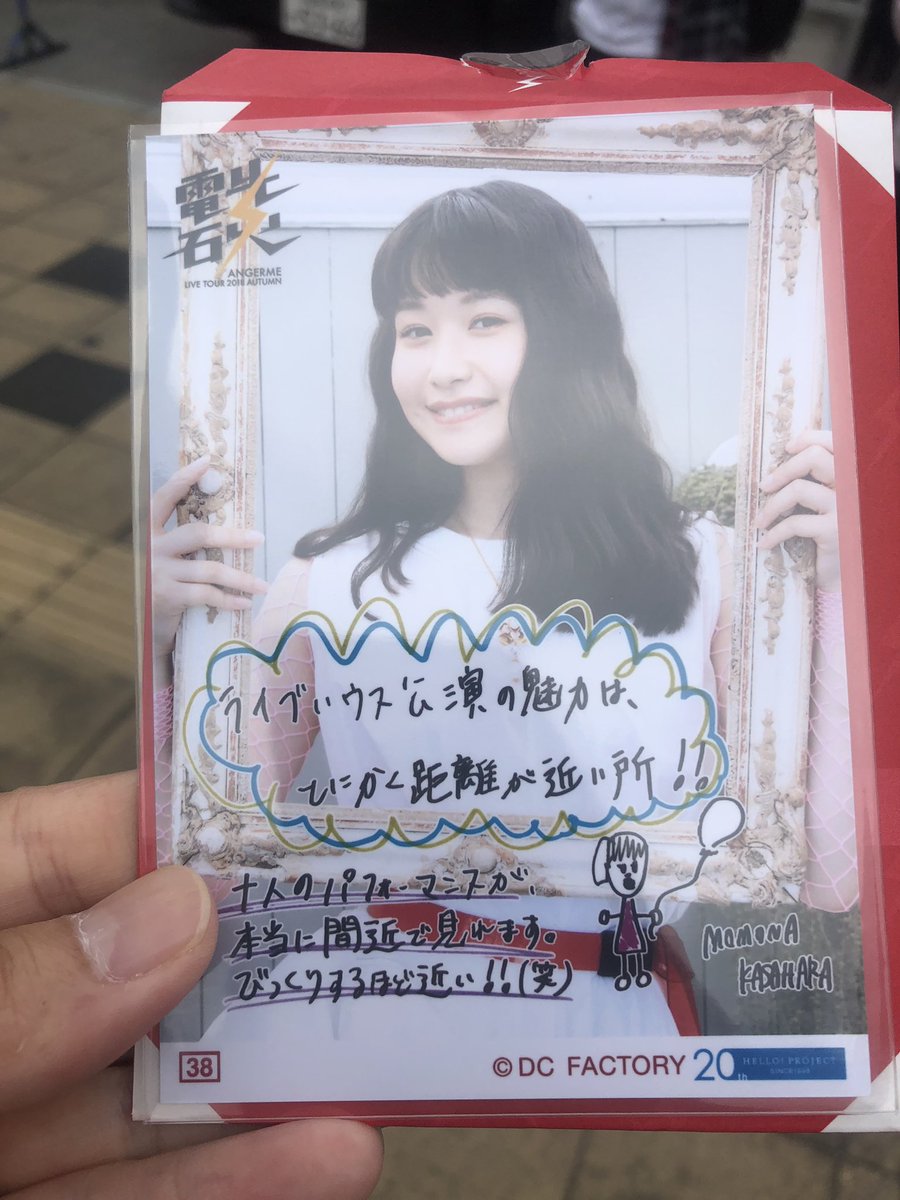 電光石火
ANGERME
LIVE TOUR 2018 AUTUMN
ライブハウス公演の魅力は、
とにかく距離が近い所!!
十人のパフォーマンスが、
本当に間近で見れます。
びっくりするほど近い!!(笑)
MOMONA
KASAHARA
38
©DC FACTORY
20th
HELLO! PROJECT
SINCE1998